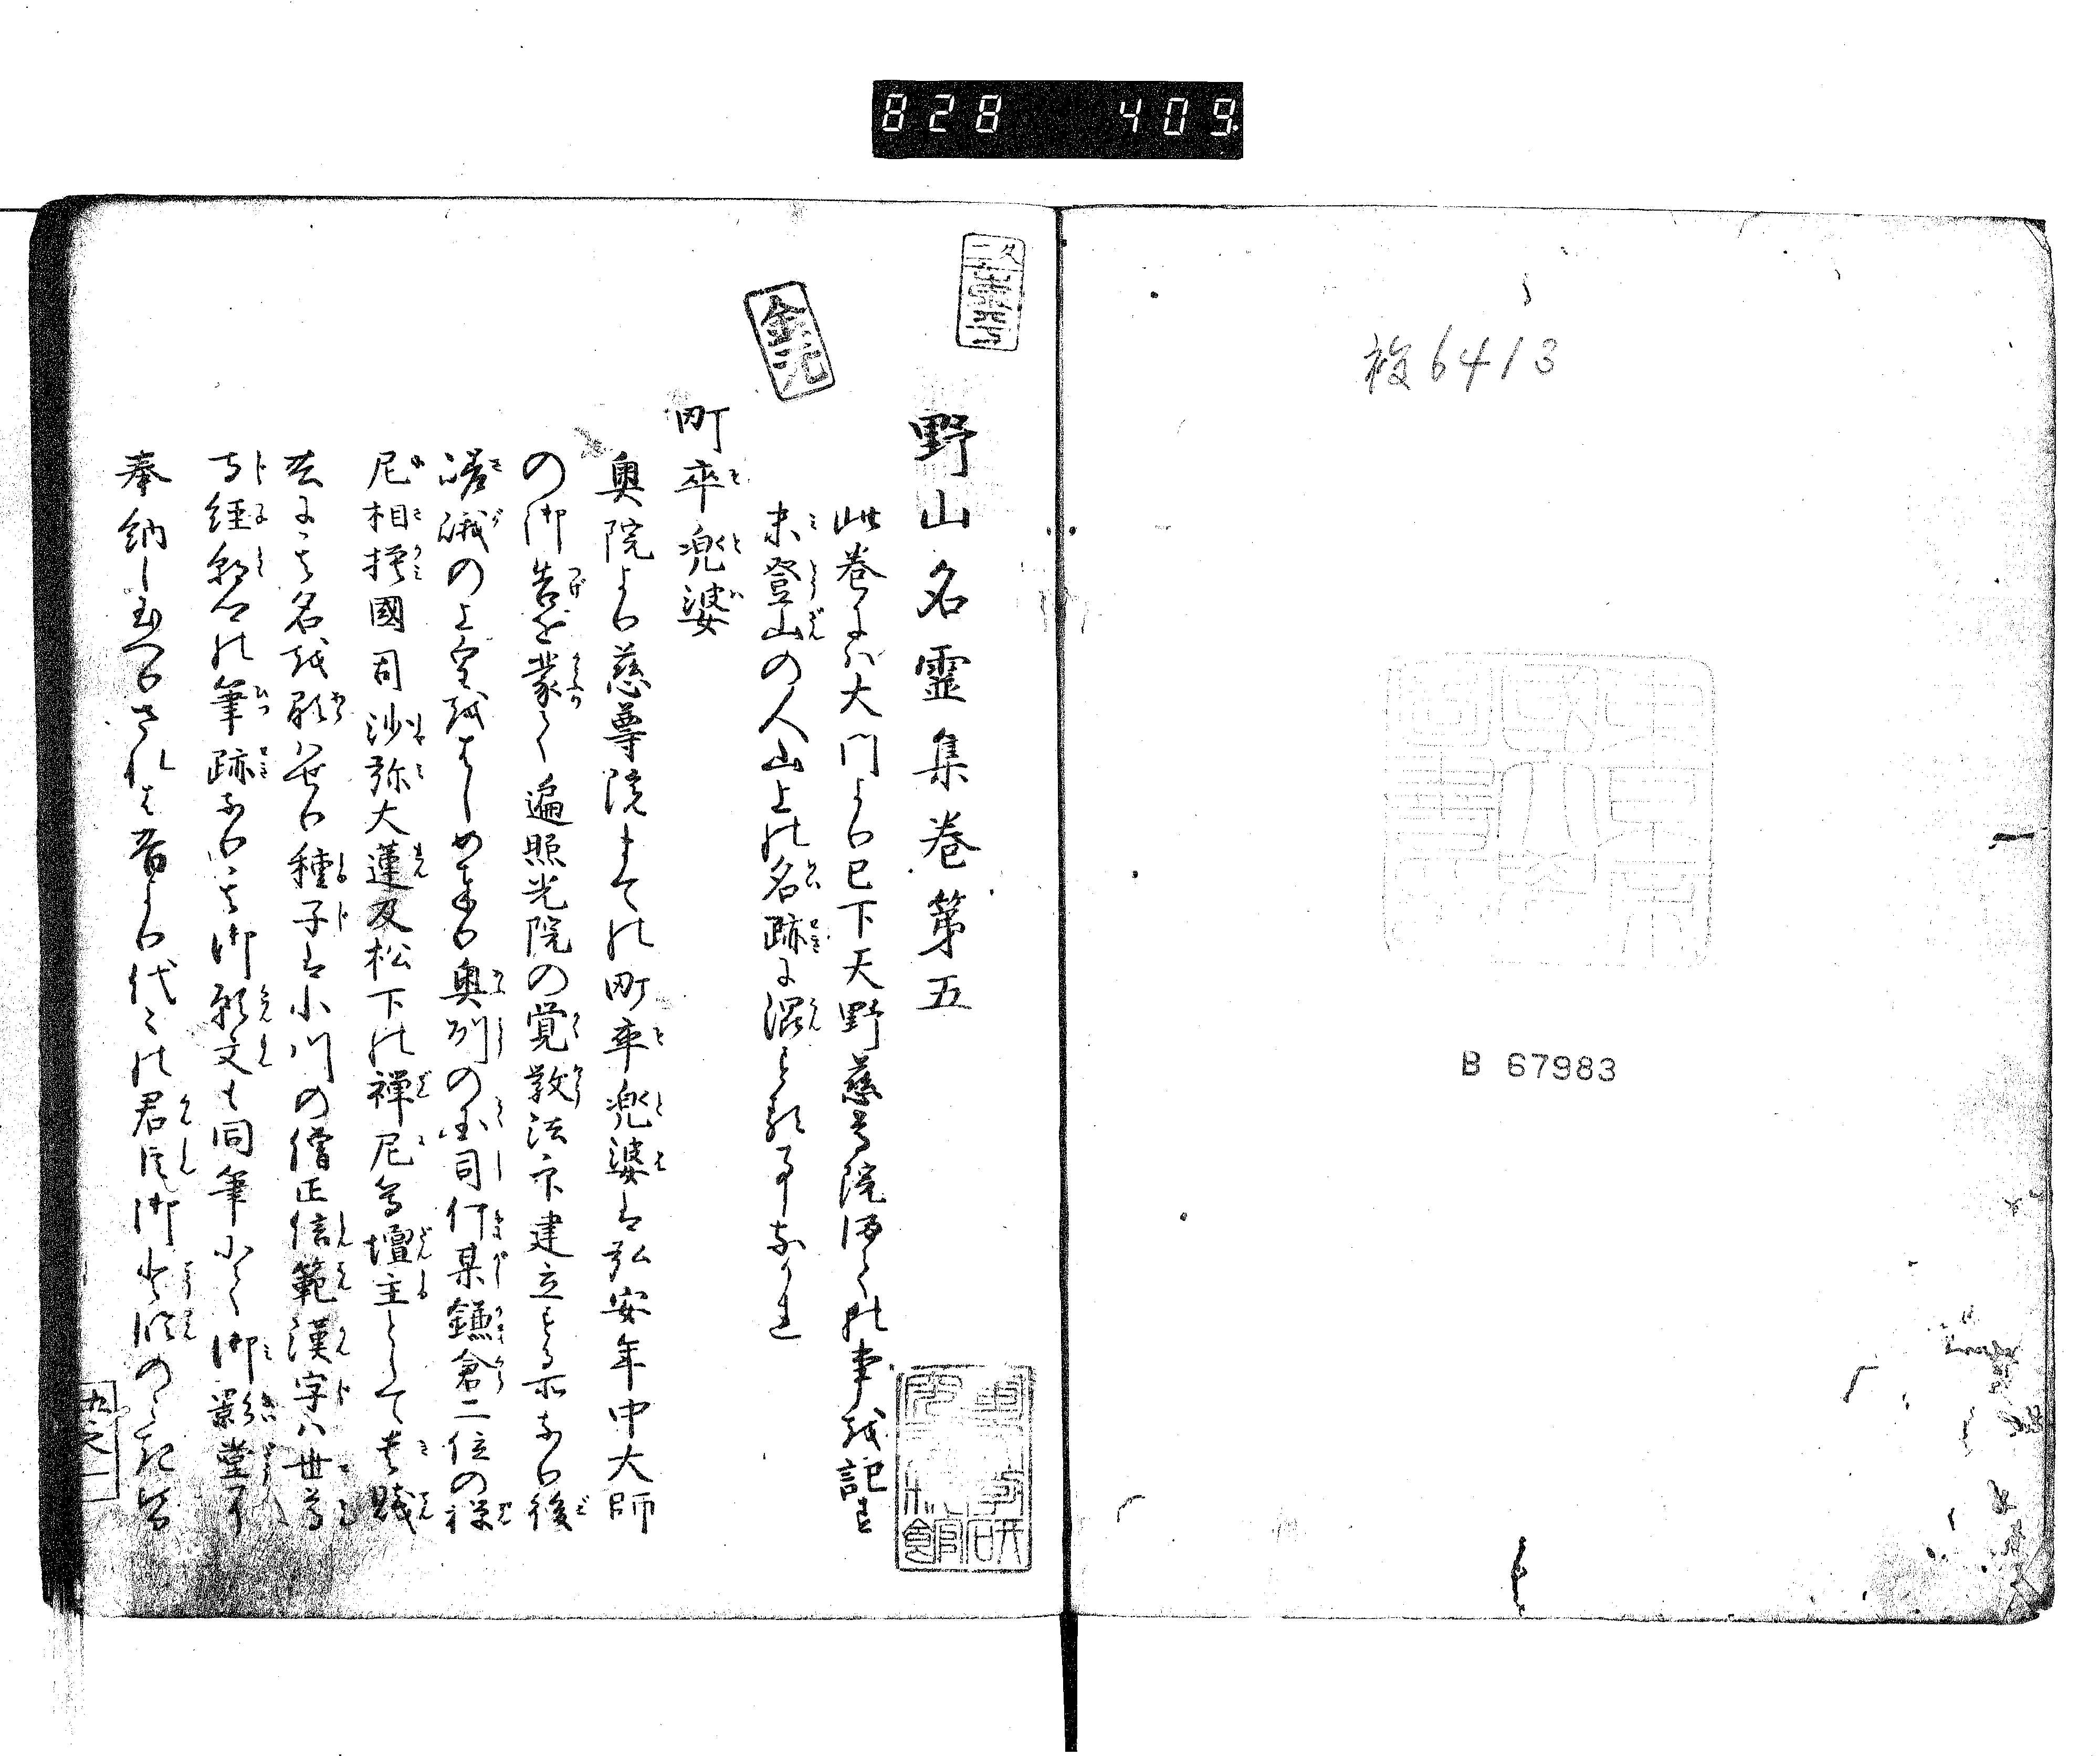 828 409
複6413
B 67983
野山名霊集巻第五
此巻にハ大門より已下天野慈尊院までの事を記す
未登山の人山上の名跡に混ずる事なかれ
金沢
町卒兜婆
奥院より慈尊院までの町卒兜婆は弘安年中大師
の御告を蒙て遍照光院の覚斅法印建立する所なり後
嵯峨の上皇をはじめ奉り奥州の国司何某鎌倉二位の禅
尼相模國司沙弥大蓮及松下の禅尼等壇主として
其名を彫せり種子は小川の僧正信範漢字ハ世尊
寺経朝の筆跡なり御願文も同筆にて御影堂に
奉納し給へりされは昔より代々の君臣御登臨の